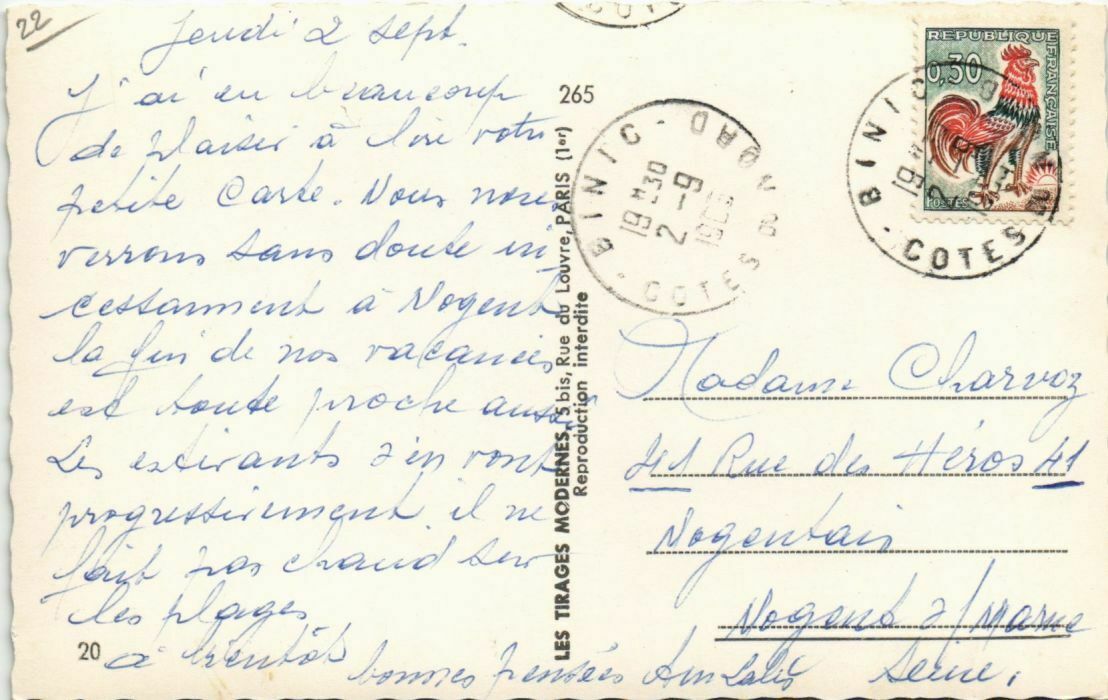 22
Jeudi 2 sept.
J'ai eu beaucoup
de plaisir à lire votre
petite Carte. Nous nous
verrons sans doute in
cessamment à Nogent
la fin de nos vacances
est toute proche aussi
Les estivants s'en vont
progressivement. il ne
fait pas chaud sur
les plages
à bientôt
bonnes pensées
20
265
LES TIRAGES MODERNES, 5 bis, Rue du Louvre, PARIS (1er)
Reproduction interdite
BINIC - COTES DU NORD
19H30
2-9
1965
REPUBLIQUE FRANÇAISE
0,30
POSTES
BINIC
COTES
Madame Charvoz
41 Rue des Héros 41
Nogentais
Nogent s/Marne
Seine.